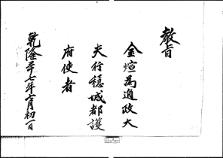 敎旨
金煊爲通政大
夫行穩城都護
府使者
乾隆 十七年 月初 日